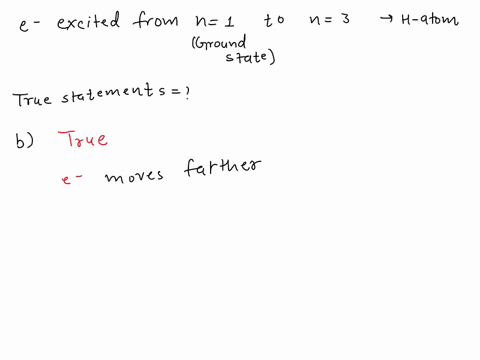 e- excited from n=1 to n=3 → H-atom
(Ground state)
True statements=?
b) True
e- moves farther